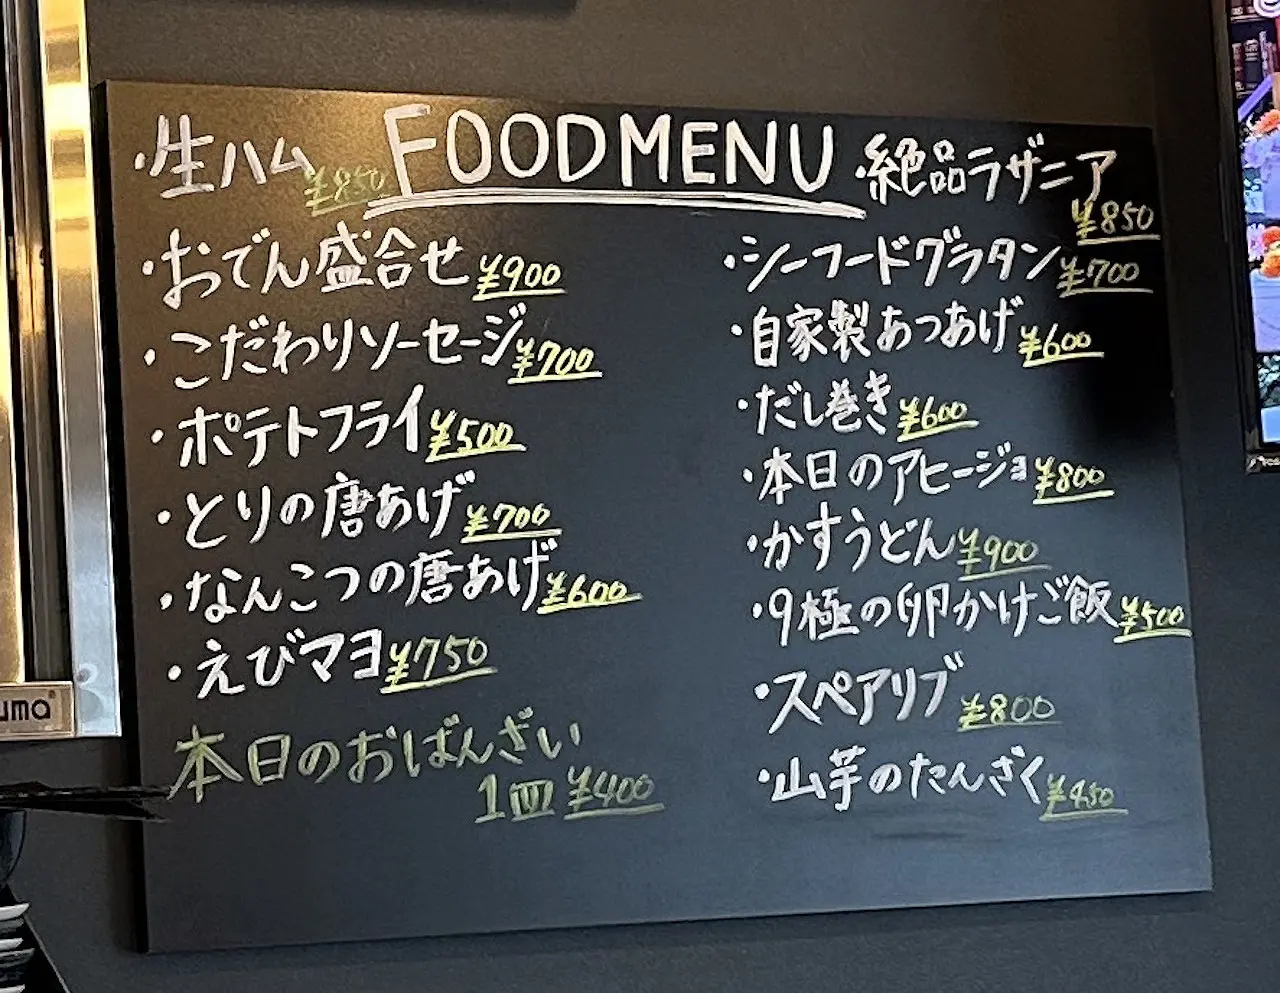 FOOD MENU
・生ハム ¥850
・おでん盛合せ ¥900
・こだわりソーセージ ¥700
・ポテトフライ ¥500
・とりの唐あげ ¥700
・なんこつの唐あげ ¥600
・えびマヨ ¥750
本日のおばんざい
1皿 ¥400
・絶品ラザニア
¥850
・シーフードグラタン ¥700
・自家製あつあげ ¥600
・だし巻き ¥600
・本日のアヒージョ ¥800
・かすうどん ¥900
・9極の卵かけご飯 ¥500
・スペアリブ ¥800
・山芋のたんざく ¥450
uma